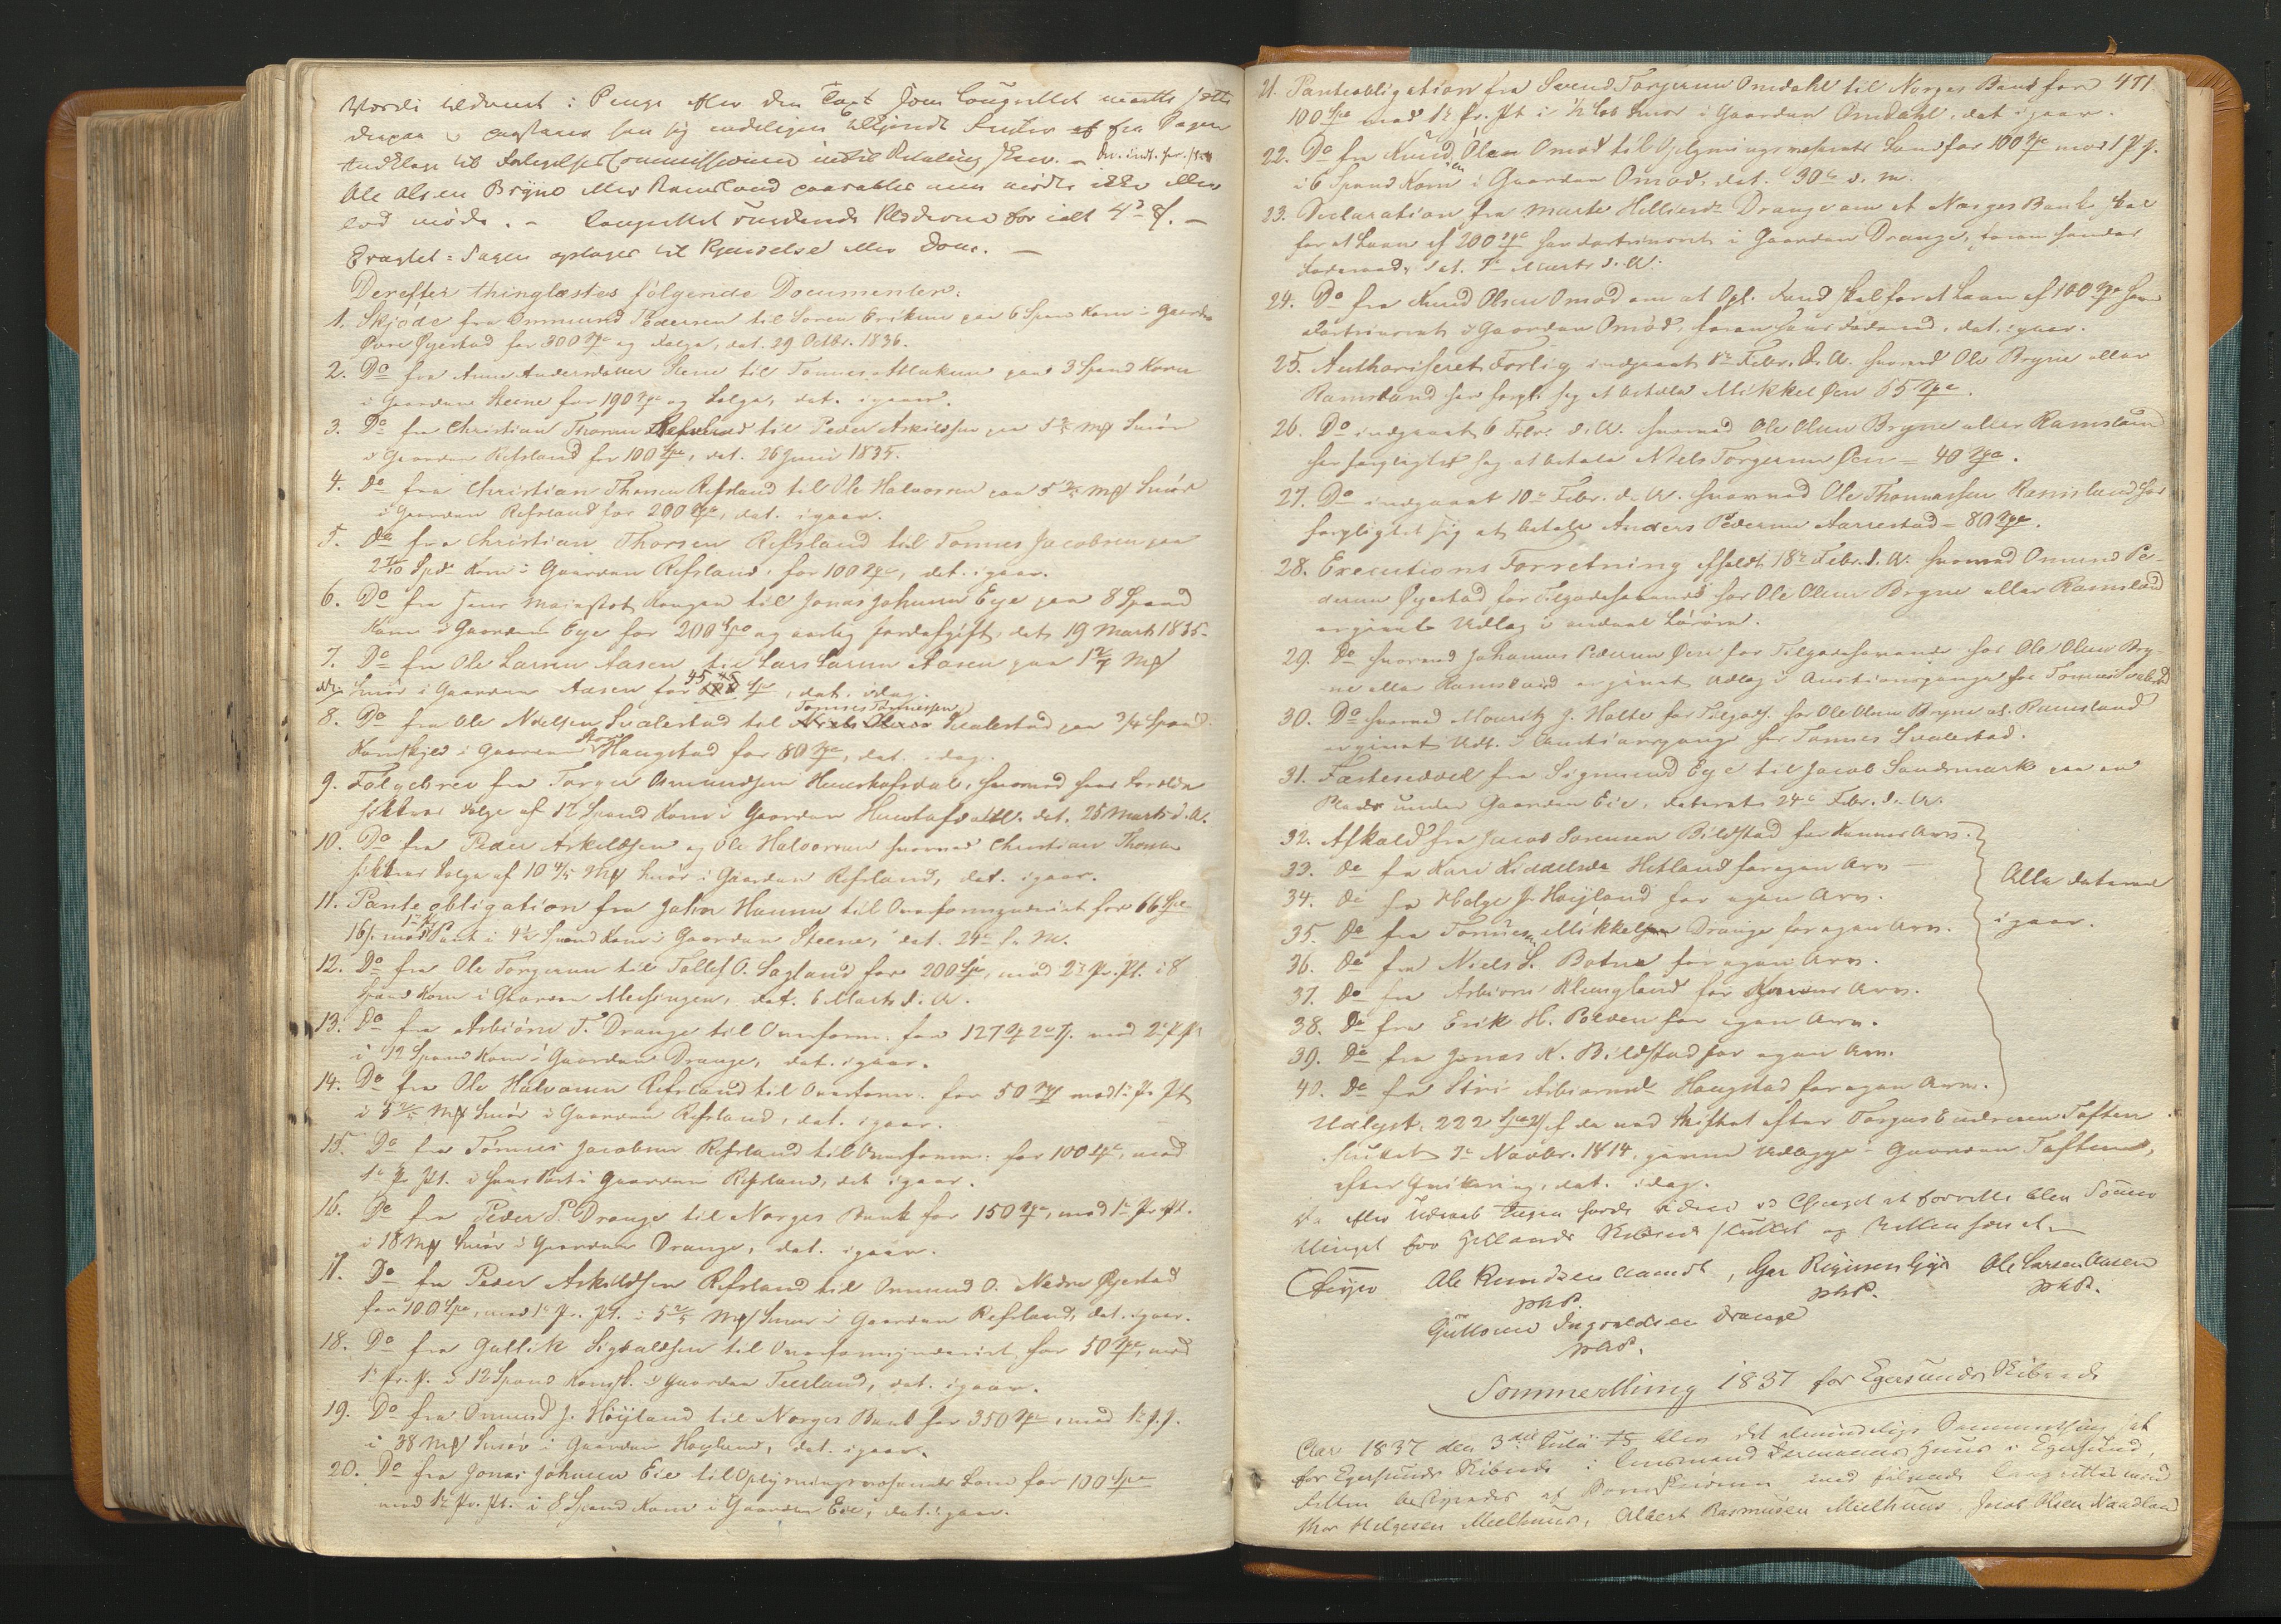 Værdi udvist i Penge eller den Taxt som Laugrettet maatte sætte
derpaa
indklage til Forligelses Commissionen indtil Betaling skeer. –
Ole Olsen Bryne eller Ramsland paaraabtes men mødte ikke eller
lod møde. – Laugrettet vurderede Klæderne for ialt 4
Eragtet: Sagen optages til Kjendelse eller Dom. –
Derefter thinglæstes følgende Documenter:
1. Skjøde fra Ommund Pedersen til Søren Eriksen paa 6 Span Korn i Gaarden
Øvre Øgrestad for 300 Spd og Følge, dat. 29 Octbr. 1836.
2. Do fra Anne Andersdatter Steene til Tønnes Aslaksen paa 3 Spand Korn
i Gaarden Steene for 190 Spd og Følge, dat. igaar.
3. Do fra Christian Thorsen Refsland til Peder Askildsen paa 5 2/5 Mf Smør
i Gaarden Refsland for 100 Spd, dat. 26 Juni 1835.
4. Do fra Christian Thorsen Refsland til Ole Halvorsen paa 5 2/5 Mf Smør
i Gaarden Refsland for 200 Spd, dat. igaar.
5. Do fra Christian Thorsen Refsland til Tønnes Jacobsen paa
2 7/10 Spd Korn i Gaarden Refsland, for 100 Spd, dat. igaar.
6. Do fra Hans Majestæt Kongen til Jonas Johnsen Eye paa 8 Spand
Korn i Gaarden Eye for 200 Spd og aarlig Jordafgift, dat. 19 Marts 1835.
7. Do fra Ole Larsen Aasen til Lars Larsen Aasen paa 1 2/7 Mf
Smør i Gaarden Aasen for 45 Spd, dat. idag.
8. Do fra Ole Nielsen Svalestad til Tønnes Tønnessen Svalestad paa 3/4 Spand
Kornskyld i Gaarden Store Haugstad for 80 Spd, dat. idag.
9. Følgebrev fra Torger Omundsen Heneshafsdal, hvorved hans Forældre
sikkres Følge af 12 Spand Korn i Gaarden dat. 25 Marts d. A.
10. Do fra Peder Askildsen og Ole Halvorsen hvorved Christian Thorsen
sikkres Følge af 10 4/5 Mf Smør i Gaarden Refsland, dat. igaar.
11. Pante obligation fra John Hansen til Overformynderiet for 66 Spd
16 s. mod 1ste Pr. Pant i 4 1/2 Spand Korn i Gaarden Steene, dat. 24de f. M.
12. Do fra Ole Torgersen til Tollef O. Sagland for 200 Spd, mod 2den Pr. Pt. i 8
Spand Korn i Gaarden Messingen, dat. 6 Marts d. A.
13. Do fra Asbiørn T. Drange til Overform. for 127 Spd 2 mod 2 P. Pt
i 12 Spand Korn i Gaarden Drange, dat. igaar.
14. Do fra Ole Halvorsen Refsland til Overform. for 50 Spd mod 1ste Pr. Pt
i 5 2/5 Mf Smør i Gaarden Refsland, dat. igaar.
15. Do fra Tønnes Jacobsen Refsland til Overform. for 100 Spd, mod
1ste Pr. Pt. i hans Part i Gaarden Refsland, dat. igaar.
16. Do fra Peder P. Drange til Norges Bank for 150 Spd, mod 1ste Pr. Pt.
i 18 Mf Smør i Gaarden Drange, dat. igaar.
17. Do fra Peder Askildsen Refsland til Ommund O. Nedre Øgrestad
for 100 Spd, mod 1ste Pr. Pt. i 5 2/5 Mf Smør i Gaarden Refsland, dat. igaar.
18. Do fra Gullik Sigbaldsen til Overformynderiet for 50 Spd, mod
1ste Pr. P. i 12 Spand Kornsk. i Gaarden Teersland, dat. igaar.
19. Do fra Omund J. Høyland til Norges Bank for 350 Spd, mod 1ste P. P.
i 38 Mf Smør i Gaarden Høyland, dat. igaar.
20. Do fra Jonas Johnsen Eie til Oplysningsvæsenets Fond for 100 Spd
mod 1ste Pr. Pt. i 8 Spand Korn i Gaarden Eie, dat. igaar.
471.
21. Panteobligation fra Svend Torgersen Omdahl til Norges Bank for
100 Spd mod 1ste Pr. Pt i 1/2 Løb Smør i Gaarden Omdahl, dat. igaar.
22. Do fra Knud Olsen Omød til Oplysningsvæsenets Fond for 100 Spd mod 1 P. P.
i 6 Spand Korn i Gaarden Omød, dat. 30te d. M.
23. Declaration fra Marte Helliesdr Drange om at Norges Bank skal
for et Laan af 200 Spd have Fortrinsret i Gaarden Drange, foran hendes
Føderaad, dat. Marts d. A.
24. Do fra Knud Olsen Omød om at Opl. Fond skal for et Laan af 100 Spd have
Fortrinsret i Gaarden Omød, foran hans Føderaad, dat. igaar.
25. Authoriseret Forlig indgaaet 8de Febr. d. A. hvorved Ole Bryne eller
Ramsland har forpl. sig at betale Mikkel Øen 65 Spd.
26. Do indgaaet 6 Febr. d. A. hvorved Ole Olsen Bryne eller Ramsland
har forpligtet sig at betale Niels Torgersen Øen – 40 Spd.
27. Do indgaaet 10de Febr. d. A. hvorved Ole Thomassen Ramsland har
forpligtet sig at betale Anders Pedersen Aarrestad – 80 Spd.
28. Executions Forretning afholdt 18de Febr. d. A. hvorved Omund Pe-
dersen Øgrestad for Tilgodehavende hos Ole Olsen Bryne eller Ramsland
er givet Udlæg i endeel Løsøre.
29. Do hvorved Johannes Pedersen Øen for Tilgodehavende hos Ole Olsen Bry-
ne eller Ramsland er givet Udlæg i Auctionspenge hos Tønnes Svalestad
30. Do hvorved Mouritz J. Holte for Tilgodeh. hos Ole Olsen Bryne el. Ramsland
er givet Udl. i Auctionspenge hos Tønnes Svalestad.
31. Fæsteseddel fra Sigmund Eye til Jacob Sandsmark paa en
Plads under Gaarden Eie, dateret 24de Febr. d. A.
32. Afkald fra Jacob Sørensen Bilstad for Kones Arv.
33. do fra Kari Kiddelsdr Hetland for egen Arv –
34. do fra Helge J. Høyland for egen Arv.
35. do fra Tønnes Mikkelsen Drange for egen Arv.
36. do fra Niels S. Botne for egen Arv.
37. do fra Asbiørn Klungland for Kones Arv.
38. do fra Erik H. Polden for egen Arv.
39. do fra Jonas N. Bilstad for egen Arv.
40. do fra Siri Asbiørnsdr Haugstad for egen Arv.
Alle daterede
igaar.
Udlyst: 222 Spd af de ved Skiftet efter Torgus Endresen Toften
sluttet 3de Novbr. 1814, givne Udlægge i Gaarden Toften,
efter Qvittering, dat. idag.
Da efter Udraab Ingen havde videre ved Thinget at forrette blev Sommer
thinget for Hellands Skibrede sluttet og Retten hævet.
Feyer Ole Knudsen Aamodt, Ole Larsen Aasen
mhP. mhP. mhP.
Guttorm Ingvaldsen Drange
mhP.
Sommerthing 1837 for Egersunds Skibrede
Aar 1837 den 3die Julii blev det almindelige Sommerthing sat
for Egersunds Skibrede i Lensmand Huus i Egersund,
Retten betjentes af Sorenskriveren med følgende Laugrettesmænd
Thor Helgesen Mielhuus, Albert Rasmusen Mielhuus, Jacob Olsen Nandland